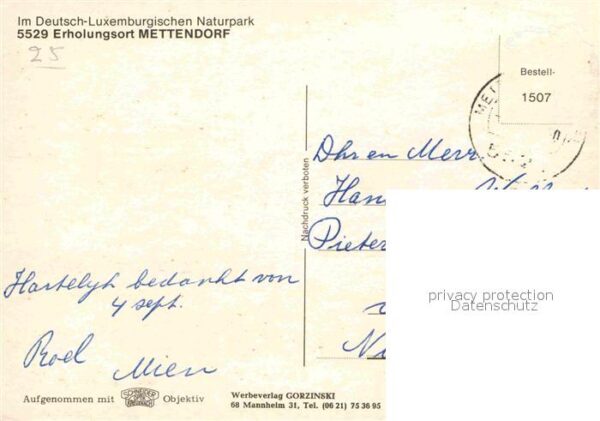 Im Deutsch-Luxemburgischen Naturpark
5529 Erholungsort METTENDORF
25
Bestell-
1507
Nachdruck verboten
Dhr en Mevr
Pieter
privacy protection
Datenschutz
Hartelijk bedankt von
4 sept.
Roel
Mien
Aufgenommen mit SCHNEIDER KREUZNACH Objektiv
Werbeverlag GORZINSKI
68 Mannheim 31, Tel. (06 21) 75 36 95